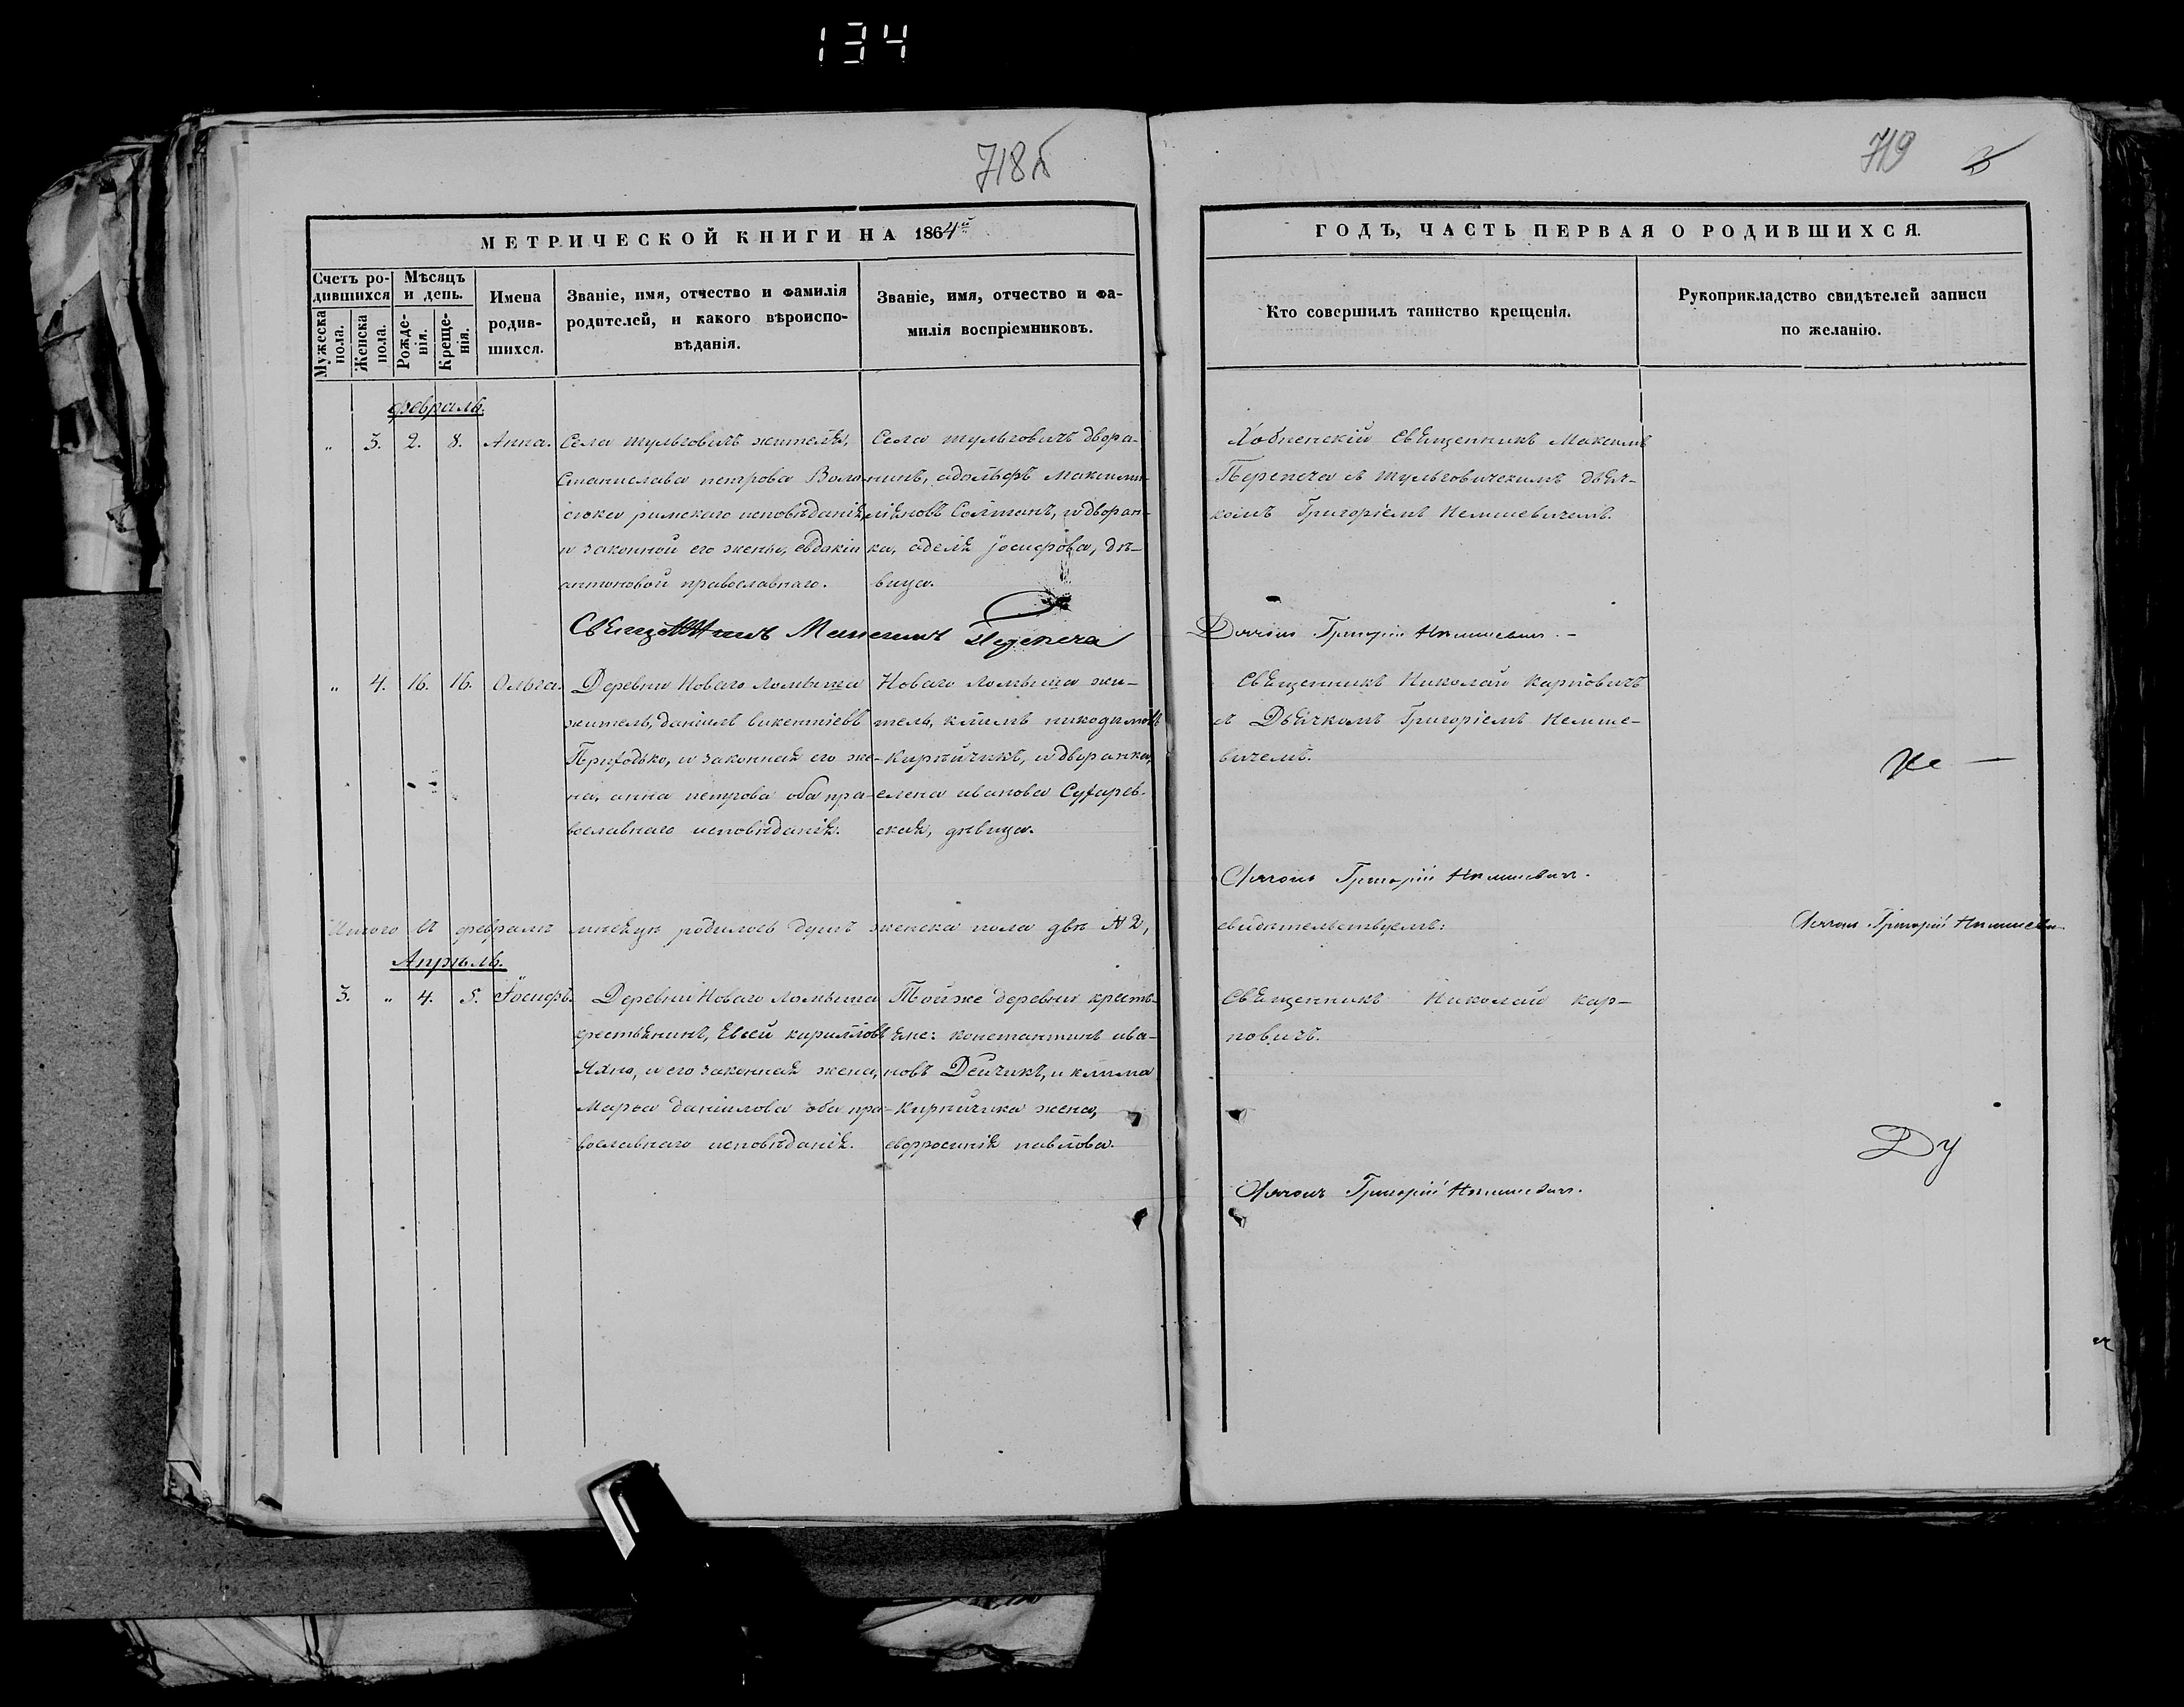 134
718б
719
3
МЕТРИЧЕСКОЙ КНИГИ НА 1864й
ГОДЪ, ЧАСТЬ ПЕРВАЯ О РОДИВШИХСЯ.
Счетъ ро-
дившихся
Мужеска
пола.
Женска
пола.
Мѣсяцъ
и день.
Рожде-
нія.
Креще-
нія.
Имена
родив-
шихся.
Званіе, имя, отчество и фамилія
родителей, и какого вѣроиспо-
вѣданія.
Званіе, имя, отчество и фа-
милія воспріемниковъ.
Кто совершилъ таинство крещенія.
Рукоприкладство свидѣтелей записи
по желанію.
февраль.
" 3. 2. 8. Анна.
Села тульговичъ жителя,
Станислава петрова
римскаго исповѣданія
и законной его жены, евдокіи
антоновой православнаго.
Села тульговичъ дворя-
нинъ, адольфъ Максими-
ліяновъ Солтанъ, и дворян-
ка, аделя јосифова, дѣ-
вица.
Хобненскій священникъ Максимъ
Перепеча съ тульговичскимъ дьяч-
комъ Григоріемъ Немшевичемъ.
Священникъ Максимъ Перепеча
Дьячокъ Григорій Немшевичъ. -
" 4. 16. 16. Ольга.
Деревни Новаго ломыша
житель, даніилъ викентіевъ
Приходько, и законная его же-
на, анна петрова оба пра-
вославнаго исповѣданія.
Новаго ломыша жи-
тель, климъ никодимовъ
Кирпичикъ, и дворянка,
елена иванова Сухарев-
ская, дѣвица.
Священникъ Николай Карповичъ
съ Дьячкомъ Григоріемъ Немше-
вичемъ.
Не —
Дьячокъ Григорій Немшевичъ.
Итого въ февралѣ мѣсяцѣ родилось душъ женска пола двѣ № 2,
свидѣтельствуемъ:
Дьячокъ Григорій Немшеви
Апрѣль.
3. " 4. 5. Іосифъ.
Деревни Новаго ломыша
крестьянинъ, Евсей кирилловъ
Яхно, и его законная жена,
Марѳа даніилова оба пра-
вославнаго исповѣданія.
Тойже деревни кресть-
яне: константинъ ива-
новъ Дейчикъ, и клима
Кирпичика жена,
евфросинія павлова.
Священникъ Николай Кар-
повичъ.
Ду
Дьячокъ Григорій Немшевичъ.